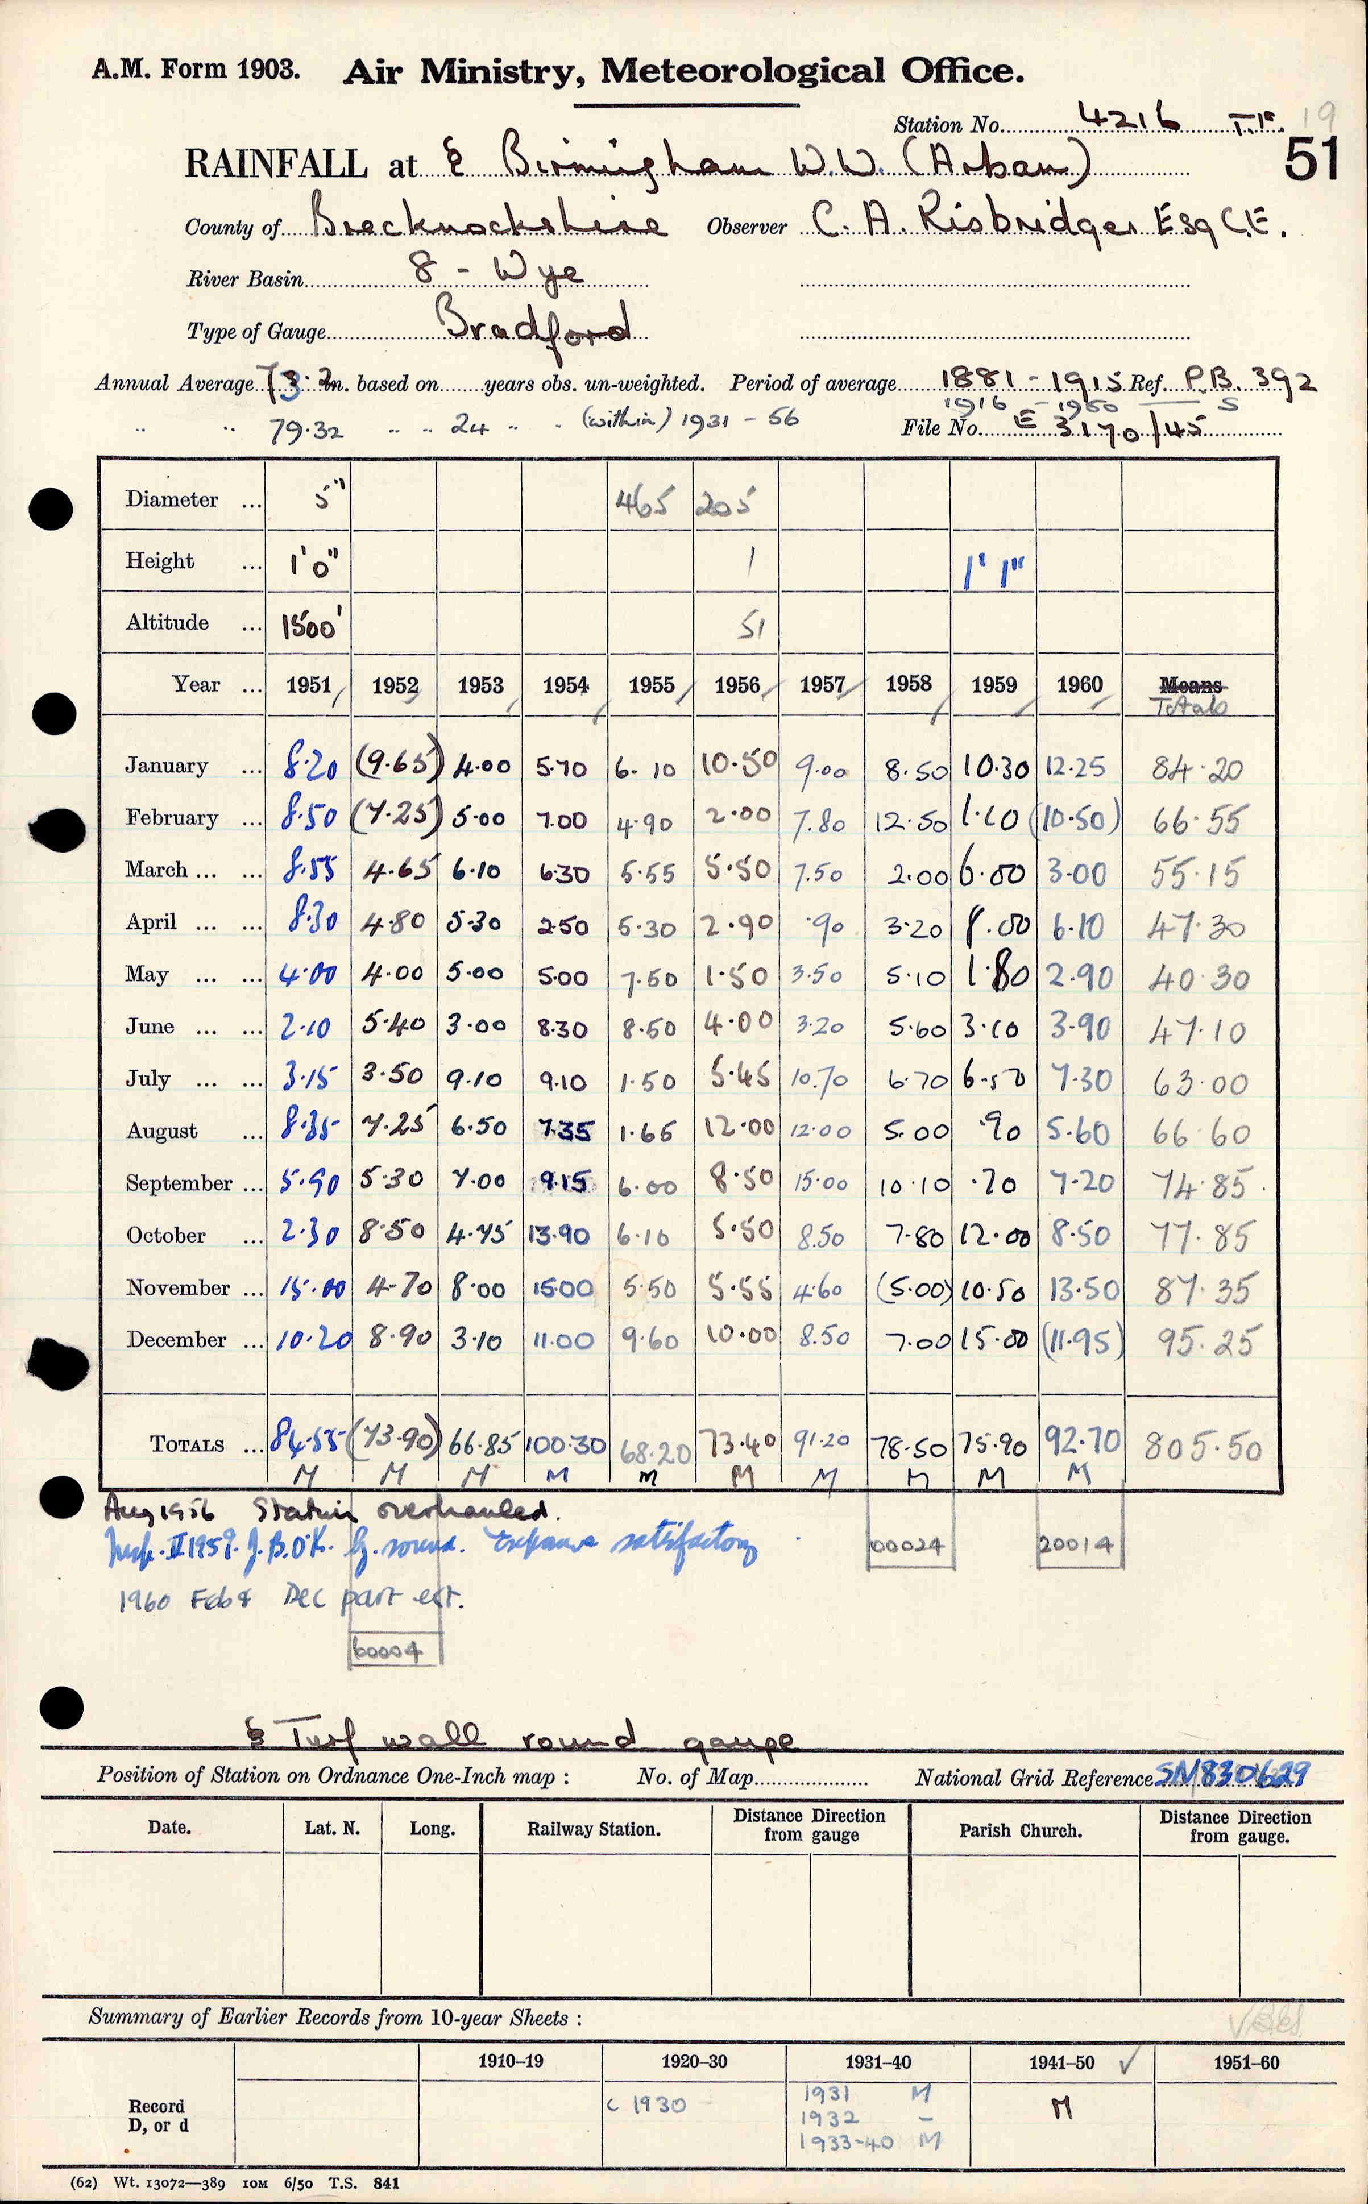 A.M. Form 1903. Air Ministry, Meteorological Office.
Station No. 4216 T.F. 19
51
RAINFALL at & Birmingham W.W. (Arban)
County of Brecknockshire Observer C. A. Risbridger Esq C.E.
River Basin 8 - Wye
Type of Gauge Bradford
Annual Average 73.2 in. based on years obs. un-weighted. Period of average 1881 - 1915 Ref. P.B. 392
1916 - 1950 S
" " 79.32 " " 24 " " (within) 1931 - 56 File No. E 3170/45
Diameter ... 5" 465 205
Height ... 1'0" 1 1' 1"
Altitude ... 1500' 51
Year ... 1951 1952 1953 1954 1955 1956 1957 1958 1959 1960 Means
Totals
January ... 8.20 (9.65) 4.00 5.70 6.10 10.50 9.00 8.50 10.30 12.25 84.20
February ... 8.50 (7.25) 5.00 7.00 4.90 2.00 7.80 12.50 1.10 (10.50) 66.55
March ... ... 8.55 4.65 6.10 6.30 5.55 5.50 7.50 2.00 6.00 3.00 55.15
April ... ... 8.30 4.80 5.30 2.50 5.30 2.90 .90 3.20 8.00 6.10 47.30
May ... ... 4.00 4.00 5.00 5.00 7.50 1.50 3.50 5.10 1.80 2.90 40.30
June ... ... 2.10 5.40 3.00 8.30 8.50 4.00 3.20 5.60 3.10 3.90 47.10
July ... ... 3.15 3.50 9.10 9.10 1.50 5.45 10.70 6.70 6.50 7.30 63.00
August ... 8.35 7.25 6.50 7.35 1.65 12.00 12.00 5.00 .90 5.60 66.60
September ... 5.90 5.30 7.00 9.15 6.00 8.50 15.00 10.10 .70 7.20 74.85
October ... 2.30 8.50 4.75 13.90 6.10 5.50 8.50 7.80 12.00 8.50 77.85
November ... 15.00 4.70 8.00 15.00 5.50 5.55 4.60 (5.00) 10.50 13.50 87.35
December ... 10.20 8.90 3.10 11.00 9.60 10.00 8.50 7.00 15.00 (11.95) 95.25
TOTALS ... 84.55 (73.90) 66.85 100.30 68.20 73.40 91.20 78.50 75.90 92.70 805.50
M M M M M M M M M M
Aug 1956 Station overhauled.
Insp. V 1959. J.B.O'K. G. sound. Exposure satisfactory
00024 20014
1960 Feb & Dec part est.
60004
& Turf wall round gauge
Position of Station on Ordnance One-Inch map : No. of Map National Grid Reference SN/830629
Date. Lat. N. Long. Railway Station. Distance Direction from gauge Parish Church. Distance Direction from gauge.
Summary of Earlier Records from 10-year Sheets :
1910–19 1920–30 1931–40 1941–50 ✓ 1951–60
Record D, or d c 1930 1931 M M
1932 –
1933-40 M
(62) Wt. 13072—389 10M 6/50 T.S. 841